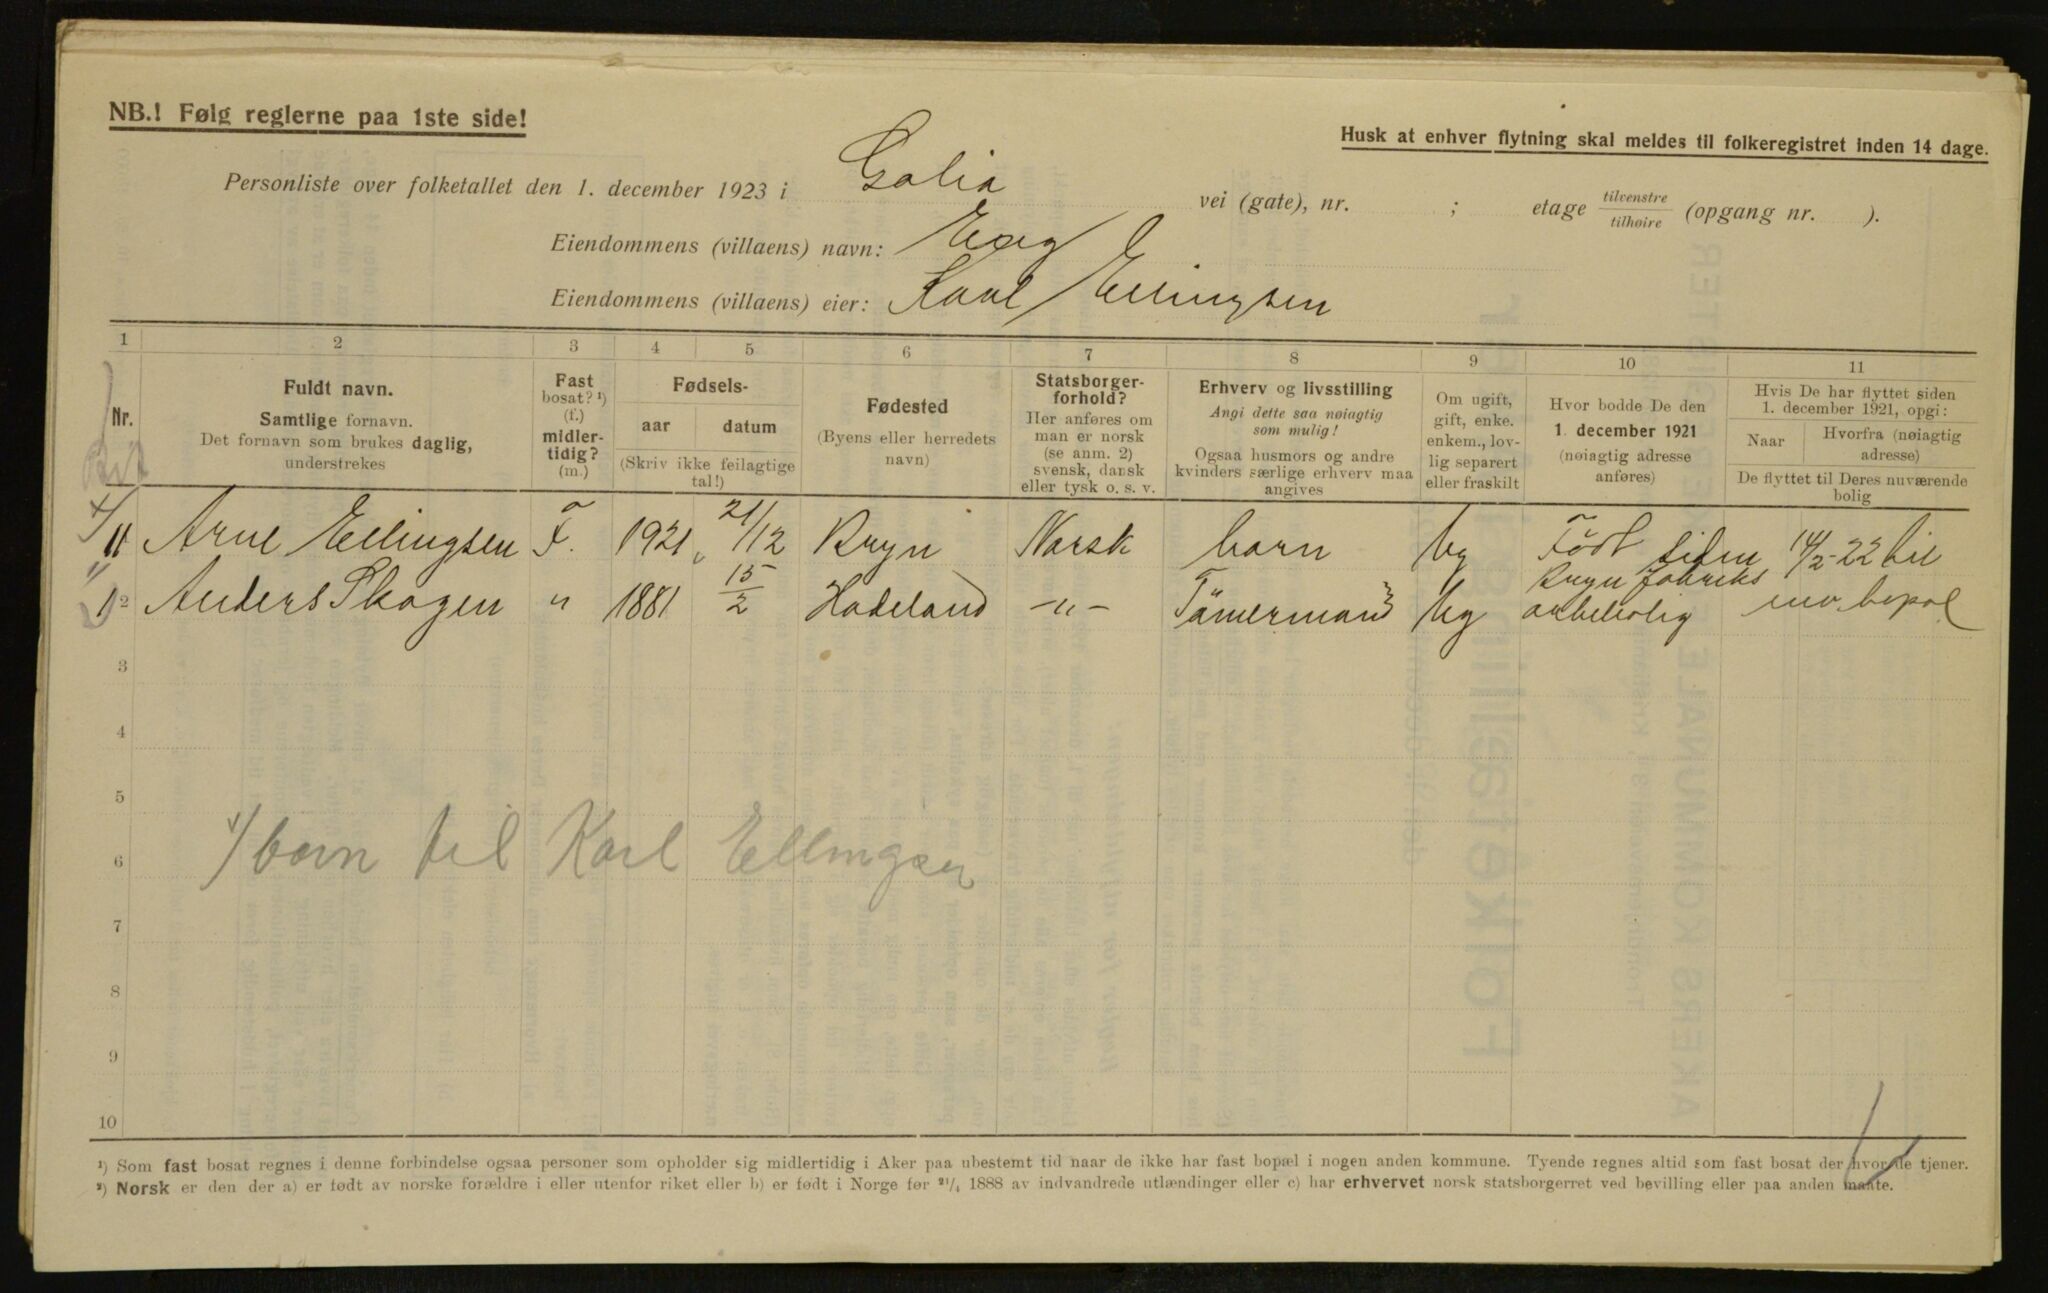 NB.! Følg reglerne paa 1ste side!
Husk at enhver flytning skal meldes til folkeregistret inden 14 dage.
Personliste over folketallet den 1. december 1923 i Galia vei (gate), nr. ; etage tilvenstre tilhøire (opgang nr. ).
Eiendommens (villaens) navn:
Eiendommens (villaens) eier: Karl Ellingsen
1 2 3 4 5 6 7 8 9 10 11
Nr.
Fuldt navn.
Samtlige fornavn.
Det fornavn som brukes daglig,
understrekes
Fast
bosat? ¹)
(f.)
midler-
tidig?
(m.)
Fødsels-
aar datum
(Skriv ikke feilagtige
tal!)
Fødested
(Byens eller herredets
navn)
Statsborger-
forhold?
Her anføres om
man er norsk
(se anm. 2)
svensk, dansk
eller tysk o. s. v.
Erhverv og livsstilling
Angi dette saa nøiagtig
som mulig!
Ogsaa husmors og andre
kvinders særlige erhverv maa
angives
Om ugift,
gift, enke.
enkem., lov-
lig separert
eller fraskilt
Hvor bodde De den
1. december 1921
(nøiagtig adresse
anføres)
Hvis De har flyttet siden
1. december 1921, opgi:
Naar
Hvorfra (nøiagtig
adresse)
De flyttet til Deres nuværende
bolig
11 Arne Ellingsen F. 1921 21/12 Bryn Norsk barn ug Født siden 14/2-22 til
2 Anders Skogen " 1881 15/2 Hadeland -"- Tømermand ug Bryn Fabriks
3
4
5
1/ barn til Karl Ellingsen
6
7
8
9
10
¹) Som fast bosat regnes i denne forbindelse ogsaa personer som opholder sig midlertidig i Aker paa ubestemt tid naar de ikke har fast bopæl i nogen anden kommune. Tyende regnes altid som fast bosat der hvor de tjener.
²) Norsk er den der a) er født av norske forældre i eller utenfor riket eller b) er født i Norge før ²¹/₄ 1888 av indvandrede utlændinger eller c) har erhvervet norsk statsborgerret ved bevilling eller paa anden maate.